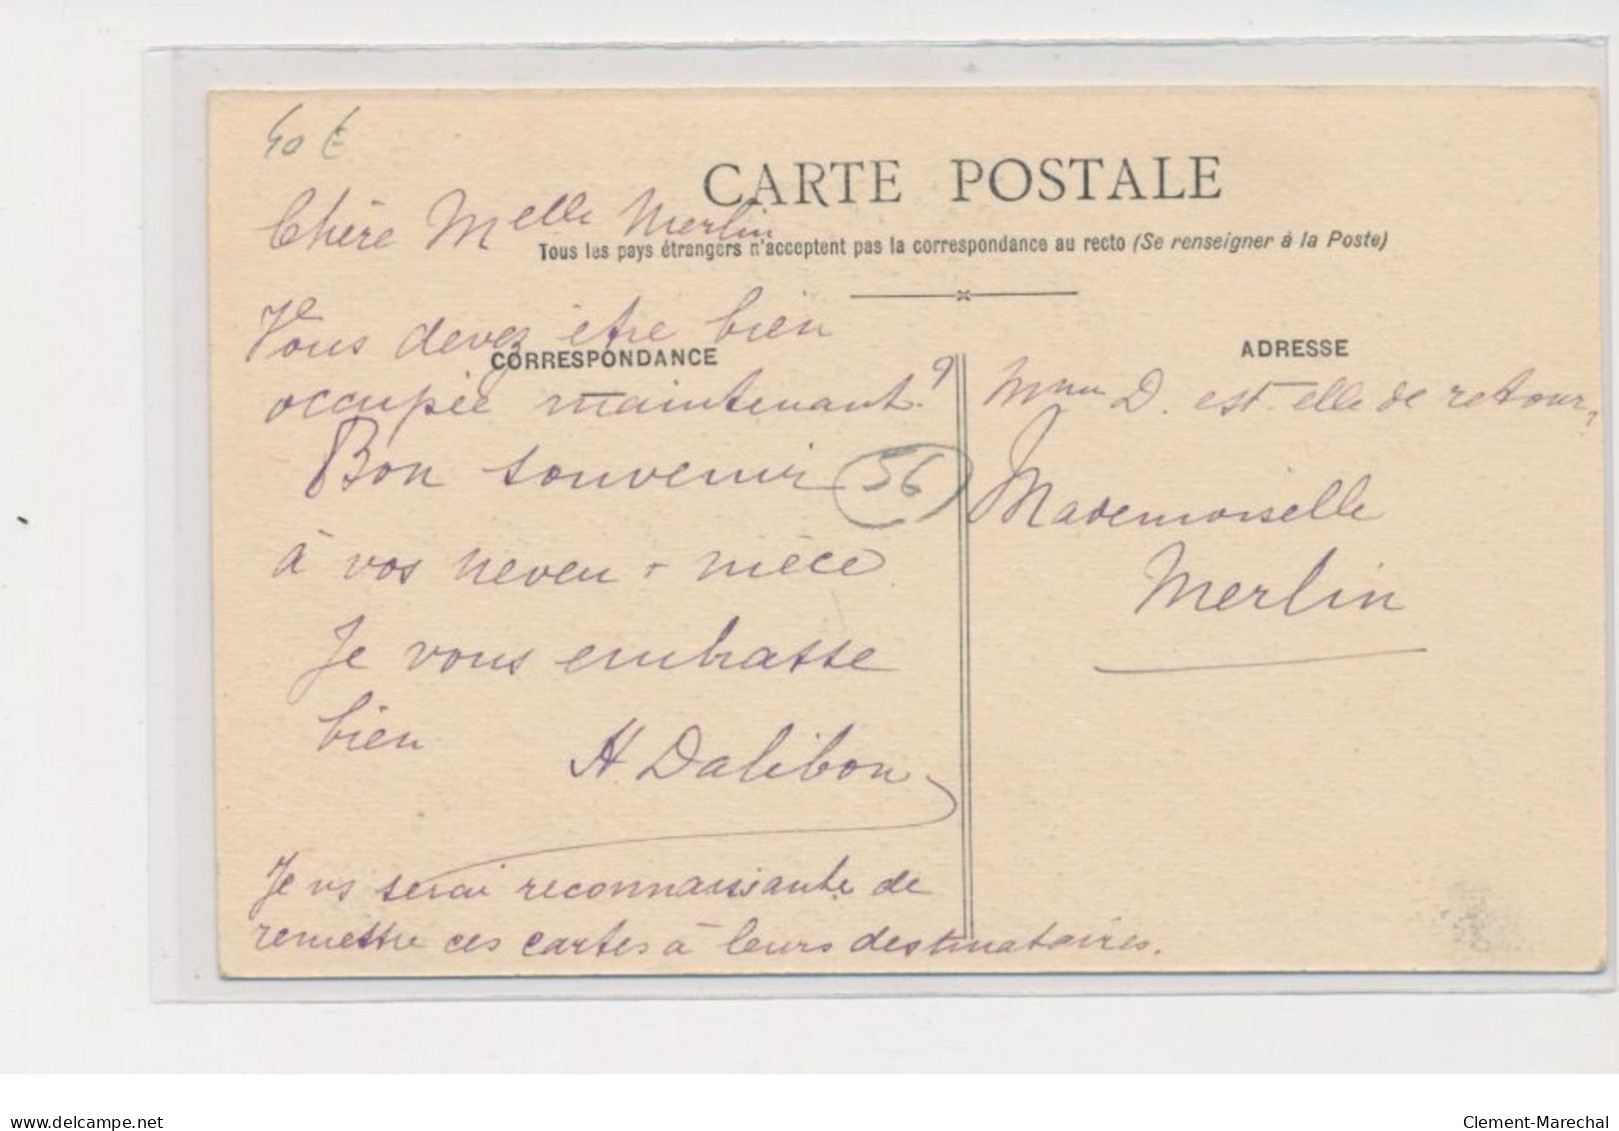 40 €
CARTE POSTALE
Chère Melle Merlin
Tous les pays étrangers n'acceptent pas la correspondance au recto (Se renseigner à la Poste)
Vous devez être bien
CORRESPONDANCE
occupée maintenant ?
Bon souvenir
56
à vos neveu + nièce.
Je vous embrasse
bien
H. Dalibon
Je vs serai reconnaissante de
remettre ces cartes à leurs destinataires.
ADRESSE
Mme D. est-elle de retour,
Mademoiselle
Merlin
www.delcampe.net
Clement-Marechal